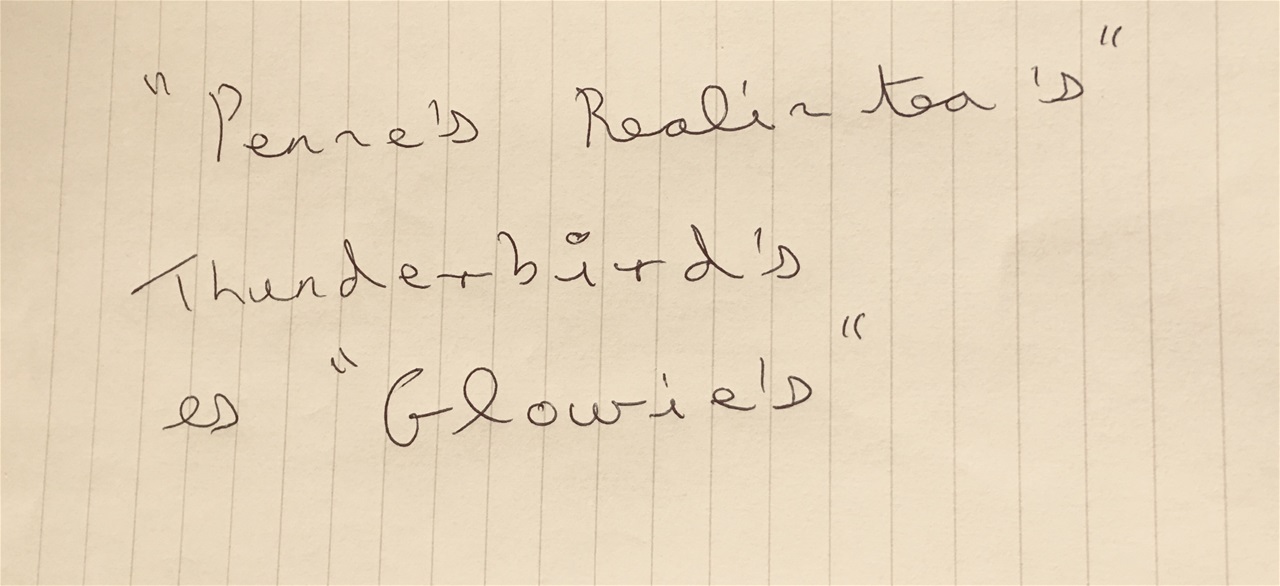 "Penne's Realin tea's"
Thunderbird's
es "Glowie's"